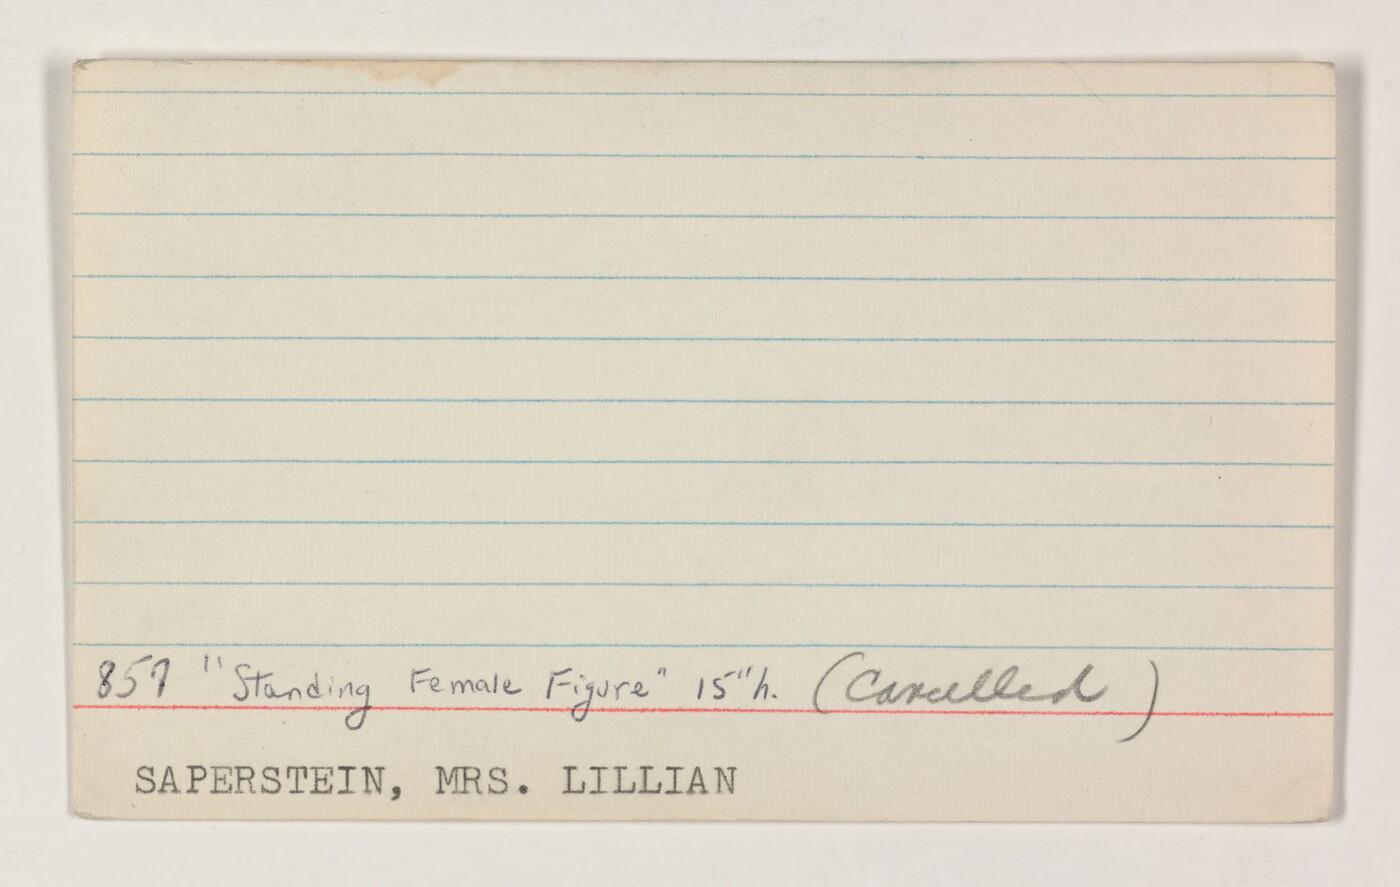 857 "Standing Female Figure" 15"h. (Cancelled)
SAPERSTEIN, MRS. LILLIAN